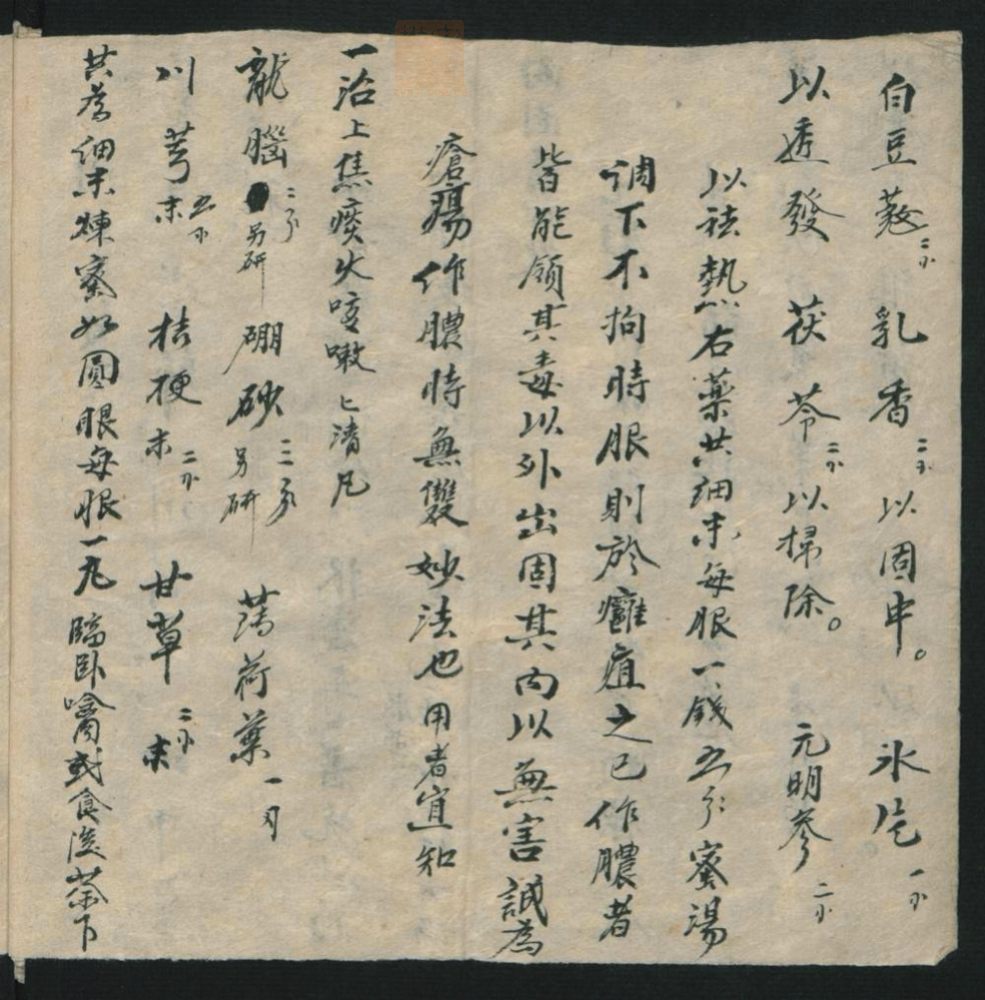 白豆蔲二小 乳香二小以固中。 氷片一小
以透發 茯苓二小以掃除。 元明参二小
以祛熱右藥共細末每服一錢五分蜜湯
调下不拘時服則於癰疽之已作膿者
皆能領其毒以外出固其内以無害誠為
瘡瘍作膿時無雙妙法也用者宜知
一治上焦痰火咳嗽上清凡
龍腦二分另研 硼砂三分另研 薄荷葉一刄
川芎末五小 桔梗末二小 甘草末二小
共為細末煉蜜如圓眼每服一丸臨卧噙或食後茶下